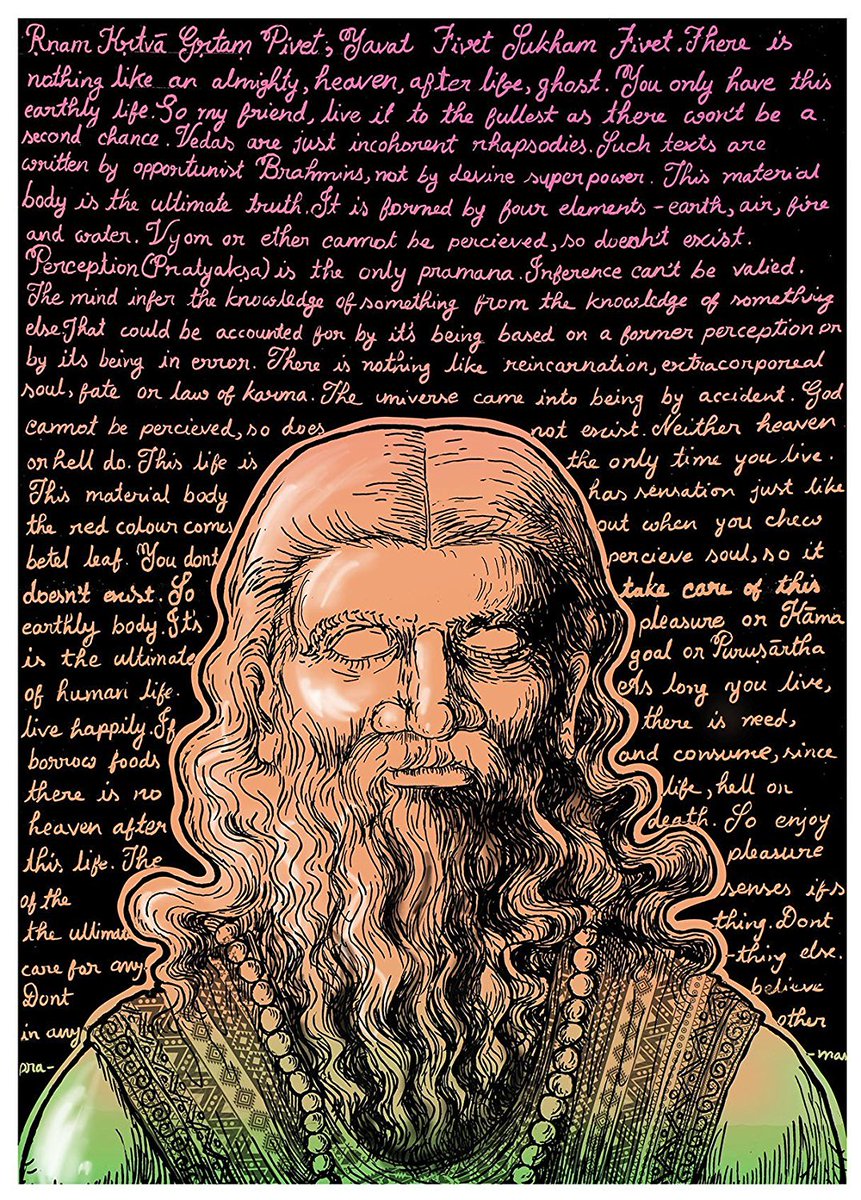 Rnam Kritvā Gritam Pivet, Yavat Jivet Sukham Jivet. There is
nothing like an almighty, heaven, after life, ghost. You only have this
earthly life. So my friend, live it to the fullest as there won't be a
second chance. Vedas are just incohorent rhapsodies. Such texts are
written by opportunist Brahmins, not by devine superpower. This material
body is the ultimate truth. It is formed by four elements - earth, air, fire
and water. Vyom or ether cannot be percieved, so doesn't exist.
Perception (Pratyakṣa) is the only pramana. Inference can't be valied.
The mind infer the knowledge of something from the knowledge of something
else. That could be accounted for by it's being based on a former perception or
by its being in error. There is nothing like reincarnation, extracorporeal
soul, fate or law of karma. The universe came into being by accident. God
cannot be percieved, so does not exist. Neither heaven
or hell do. This life is the only time you live.
This material body has sensation just like
the red colour comes out when you chew
betel leaf. You dont percieve soul, so it
doesn't exist. So take care of this
earthly body. It's pleasure or Kāma
is the ultimate goal or Puruṣārtha
of human life. As long you live,
live happily. If there is need,
borrow foods and consume, since
there is no life, hell or
heaven after death. So enjoy
this life. The pleasure
of the senses is
the ultimate thing. Dont
care for any-thing else.
Dont believe
in any other
pra-mas